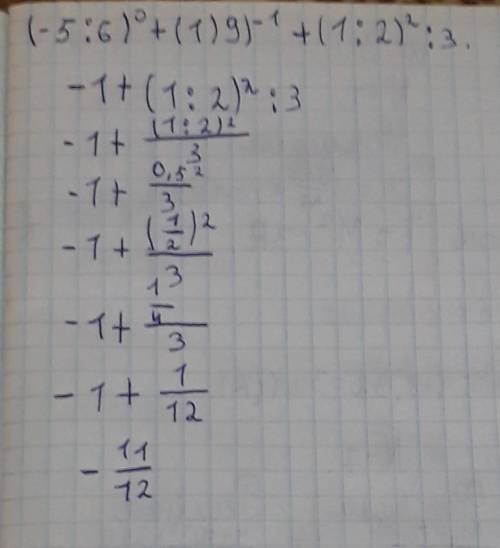 (-5:6)⁰+(1)9)⁻¹+(1:2)²:3.
-1+(1:2)²:3
-1+ (1:2)²/3
-1+ 0,5²/3
-1+ (1/2)²/3
-1+ 1/4/3
-1+ 1/12
- 11/12